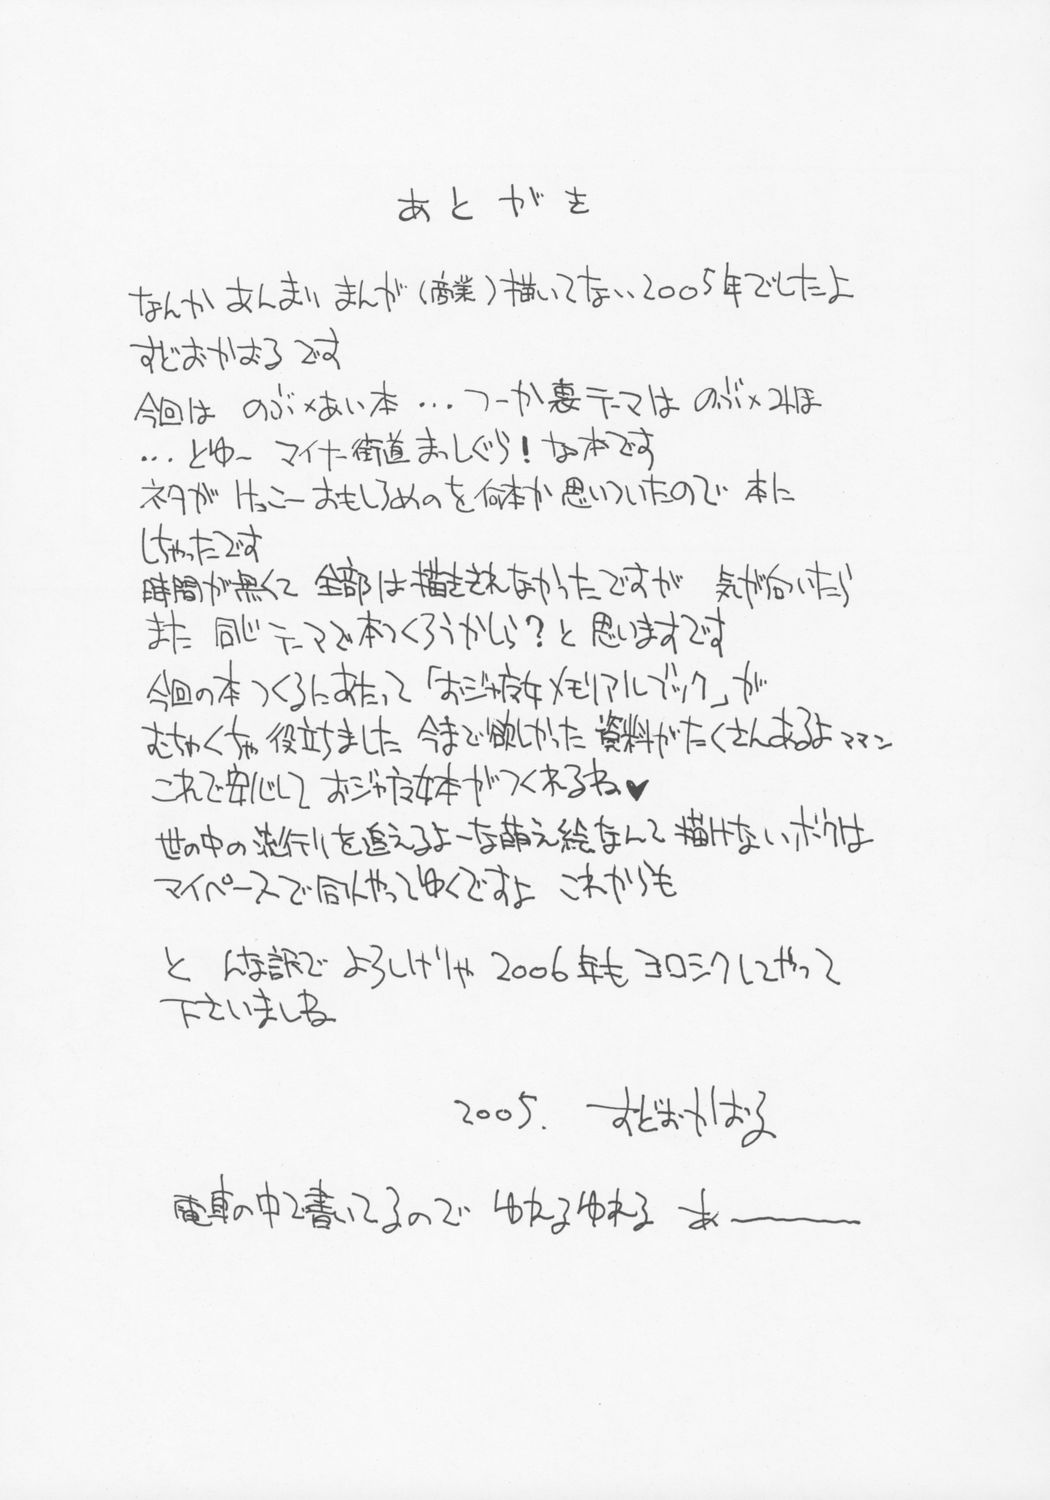 あとがき
なんか あんまり まんが(商業)描いてない2005年でしたよ
すどおかおる です
今回は のぶ×あい本 …つーか裏テーマは のぶ×みほ
…とゆ〜 マイナー街道まっしぐら!な本です
ネタが けっこー おもしろめのを何本か思いついたので 本に
しちゃったです
時間が無くて 全部は描ききれなかったですが 気が向いたら
また 同じテーマで本つくろうかしら?と 思いますです
今回の本 つくるにあたって「おジャ魔女メモリアルブック」が
むちゃくちゃ役立ちました 今まで欲しかった 資料がたくさんあるよママン
これで安心して おジャ魔女本がつくれるね♥
世の中の流行りを追えるよーな萌え絵なんて描けないボクは
マイペースで同人やってゆくですよ これからも
と んな訳で よろしけりゃ 2006年も ヨロシクしてやって
下さいましね
2005. すどおかおる
電車の中で書いてるので ゆれるゆれる あ〜